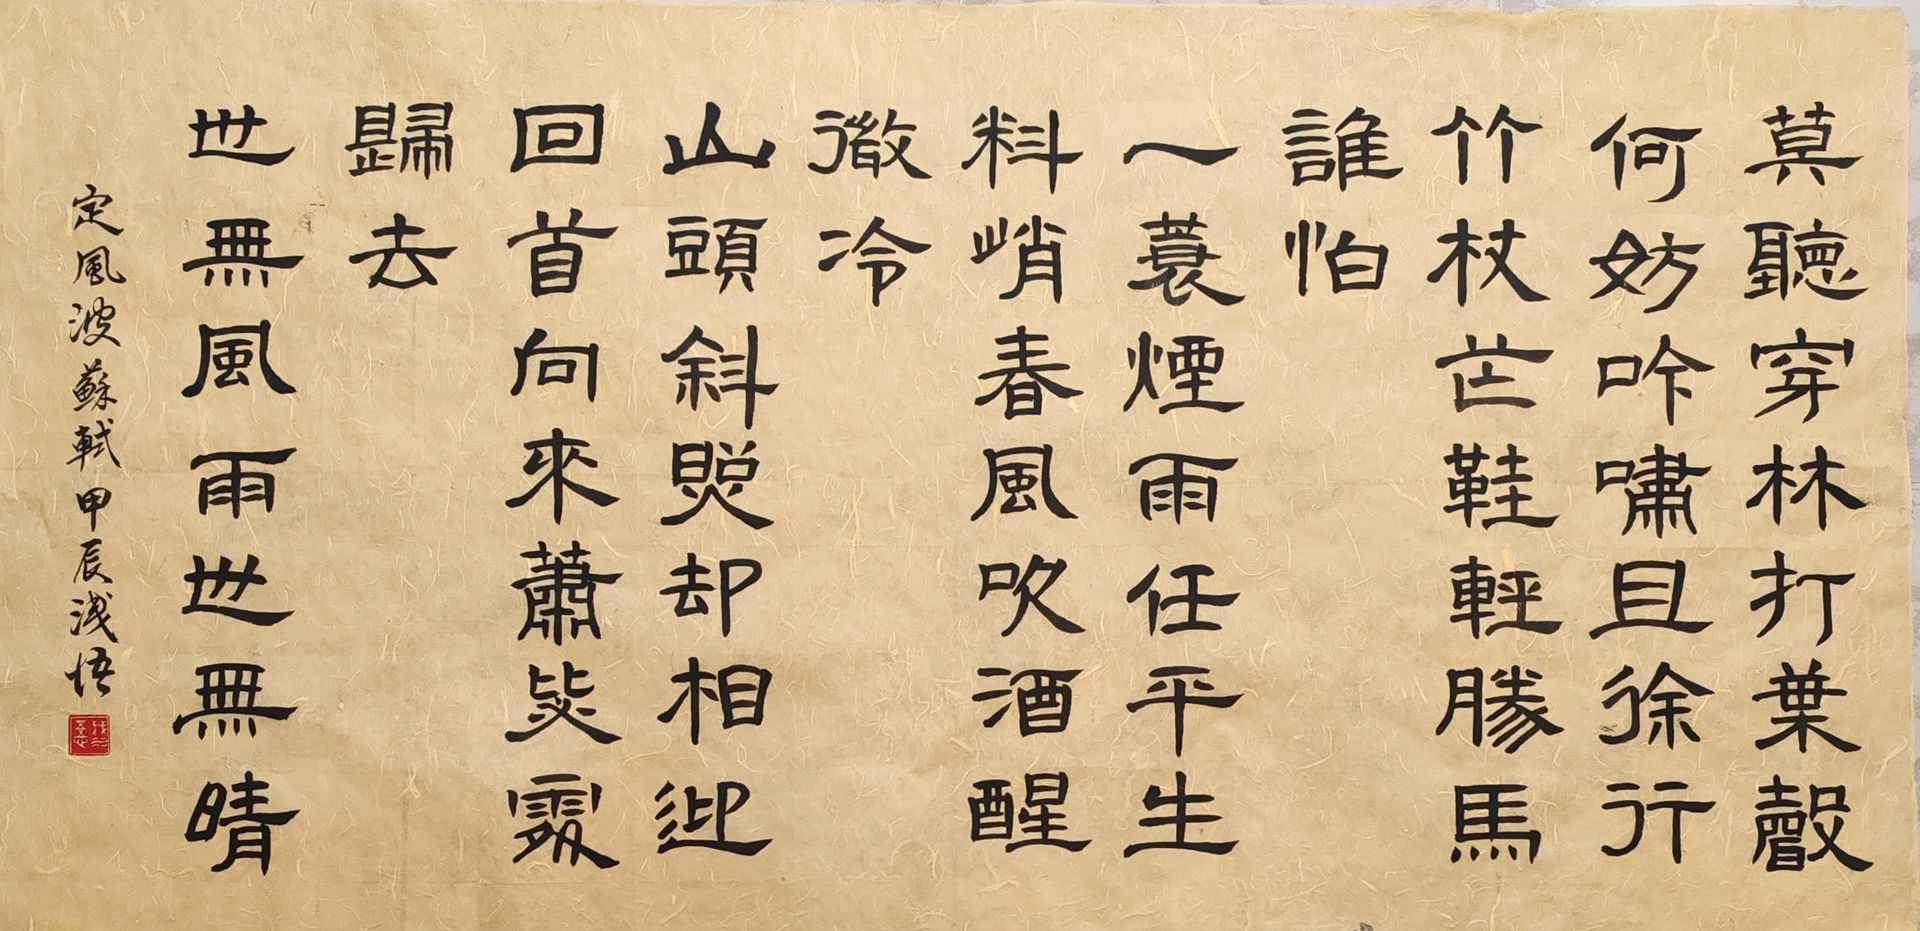 莫聽穿林打葉聲
何妨吟嘯且徐行
竹杖芒鞋輕勝馬
誰怕
一蓑煙雨任平生
料峭春風吹酒醒
微冷
山頭斜照却相迎
回首向來蕭瑟處
歸去
也無風雨也無晴
定風波蘇軾甲辰淺悟